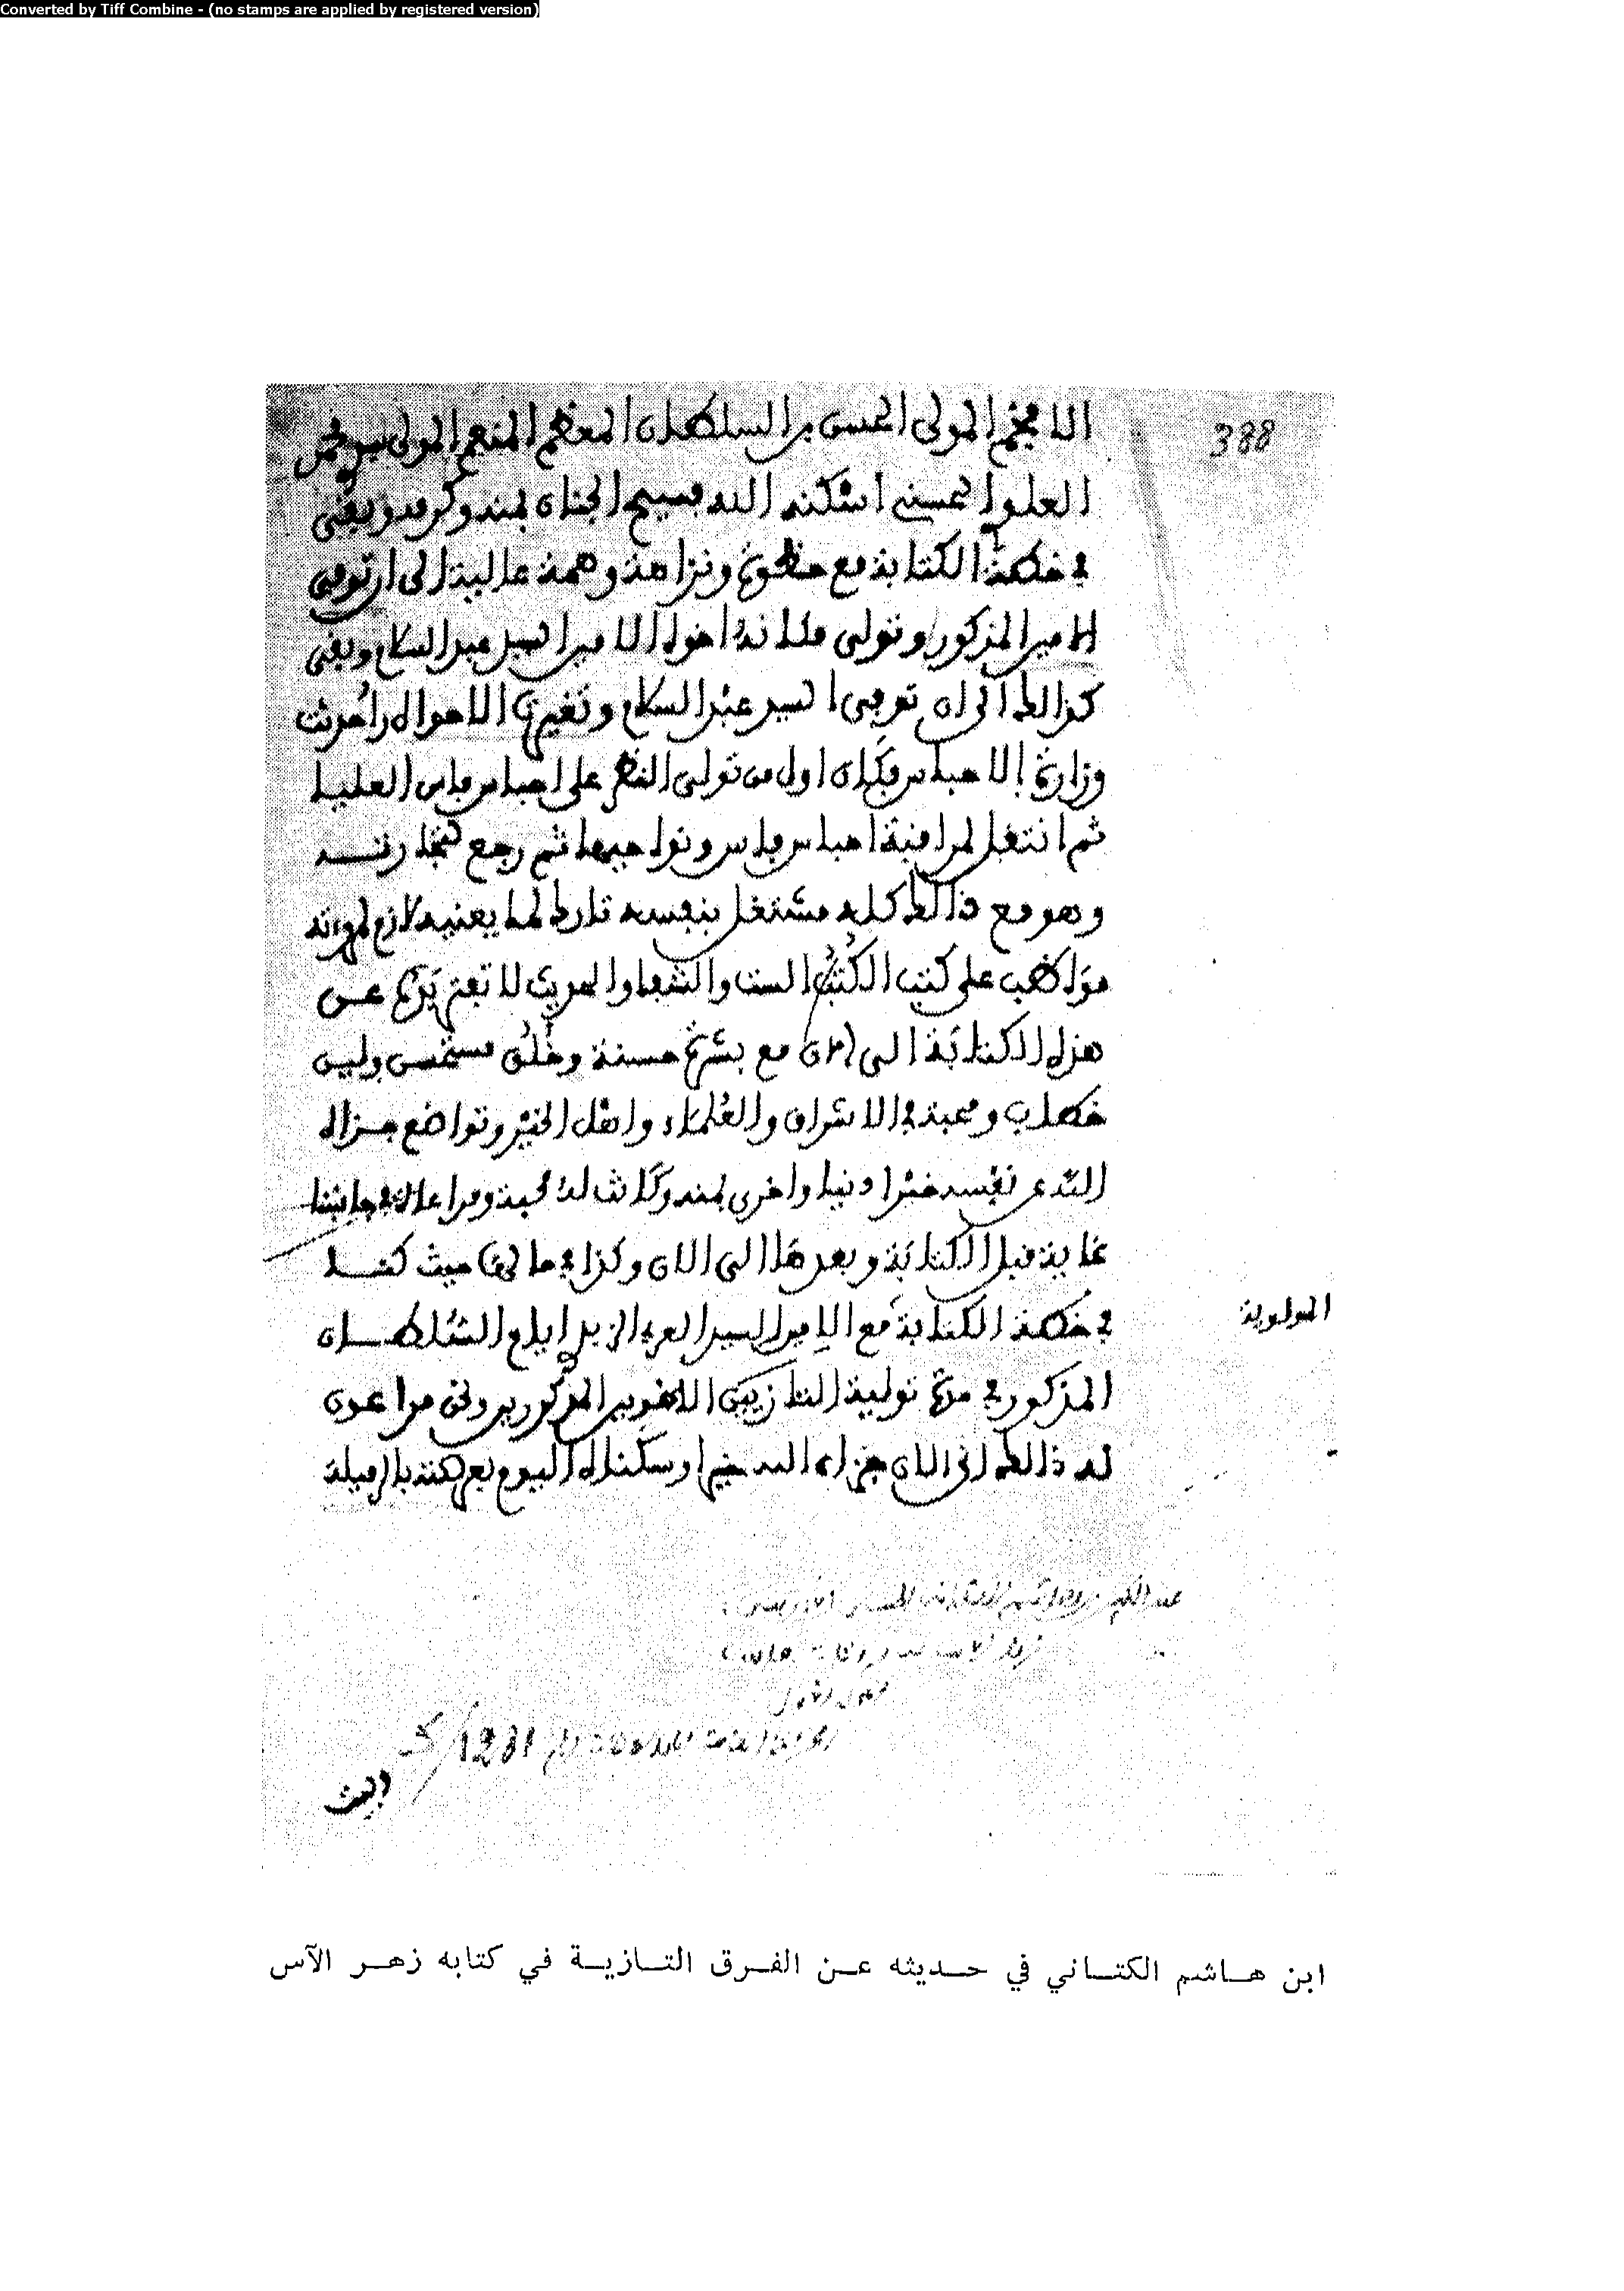 Converted by Tiff Combine - (no stamps are applied by registered version)
388
الافخم المولى الحسن بن السلطان المعظم المنعم المولى سيدي محمد
العلوي الحسني اسكنه الله فسيح الجنان بمنه وكرمه وبقى
في خطة الكتابة مع حظوة ونزاهة وهمة عالية الى ان توفي
الامير المذكور وتولى مكانه اخوه الامير السيد عبد السلام وبقى
كذالك الى ان توفى السيد عبد السلام وتغيرت الاحوال واحدثت
وزارة الاحباس فكان اول من تولى النظر على احباس فاس العليا
ثم انتقل لمراقبة احباس فاس ونواحيها ثم رجع
وهو مع ذالك كله مشتغل بنفسه تارك لما يعنيه لازم
مواظب على كتب الكتب الست والشفا والحديث لا تفتر يده عن
هذه الكتابة الى الان مع بشرة حسنة وخلق مستحسن ولين
خطاب ومحبة في الاشراف والعلماء واهل الخير وتواضع جزاه
الله عن نفسه خيرا دنيا واخرى بمنه وكانت له محبة ومراعاة في جانبنا
غاية قبل الكتابة وبعدها الى الان وكذا في حالة حيث كنا
في خطة الكتابة مع الامير السيد العربي الزيدي ايام السلطان
المولوية
المذكور في مدة تولية التازيين الاخوين المذكورين ونحن مراعون
له ذالك الى الان جزاه الله خيرا وسكناه اليوم بعرصته بالرميلة
1281
ابن هاشم الكتاني في حديثه عن الفرق التازية في كتابه زهر الآس